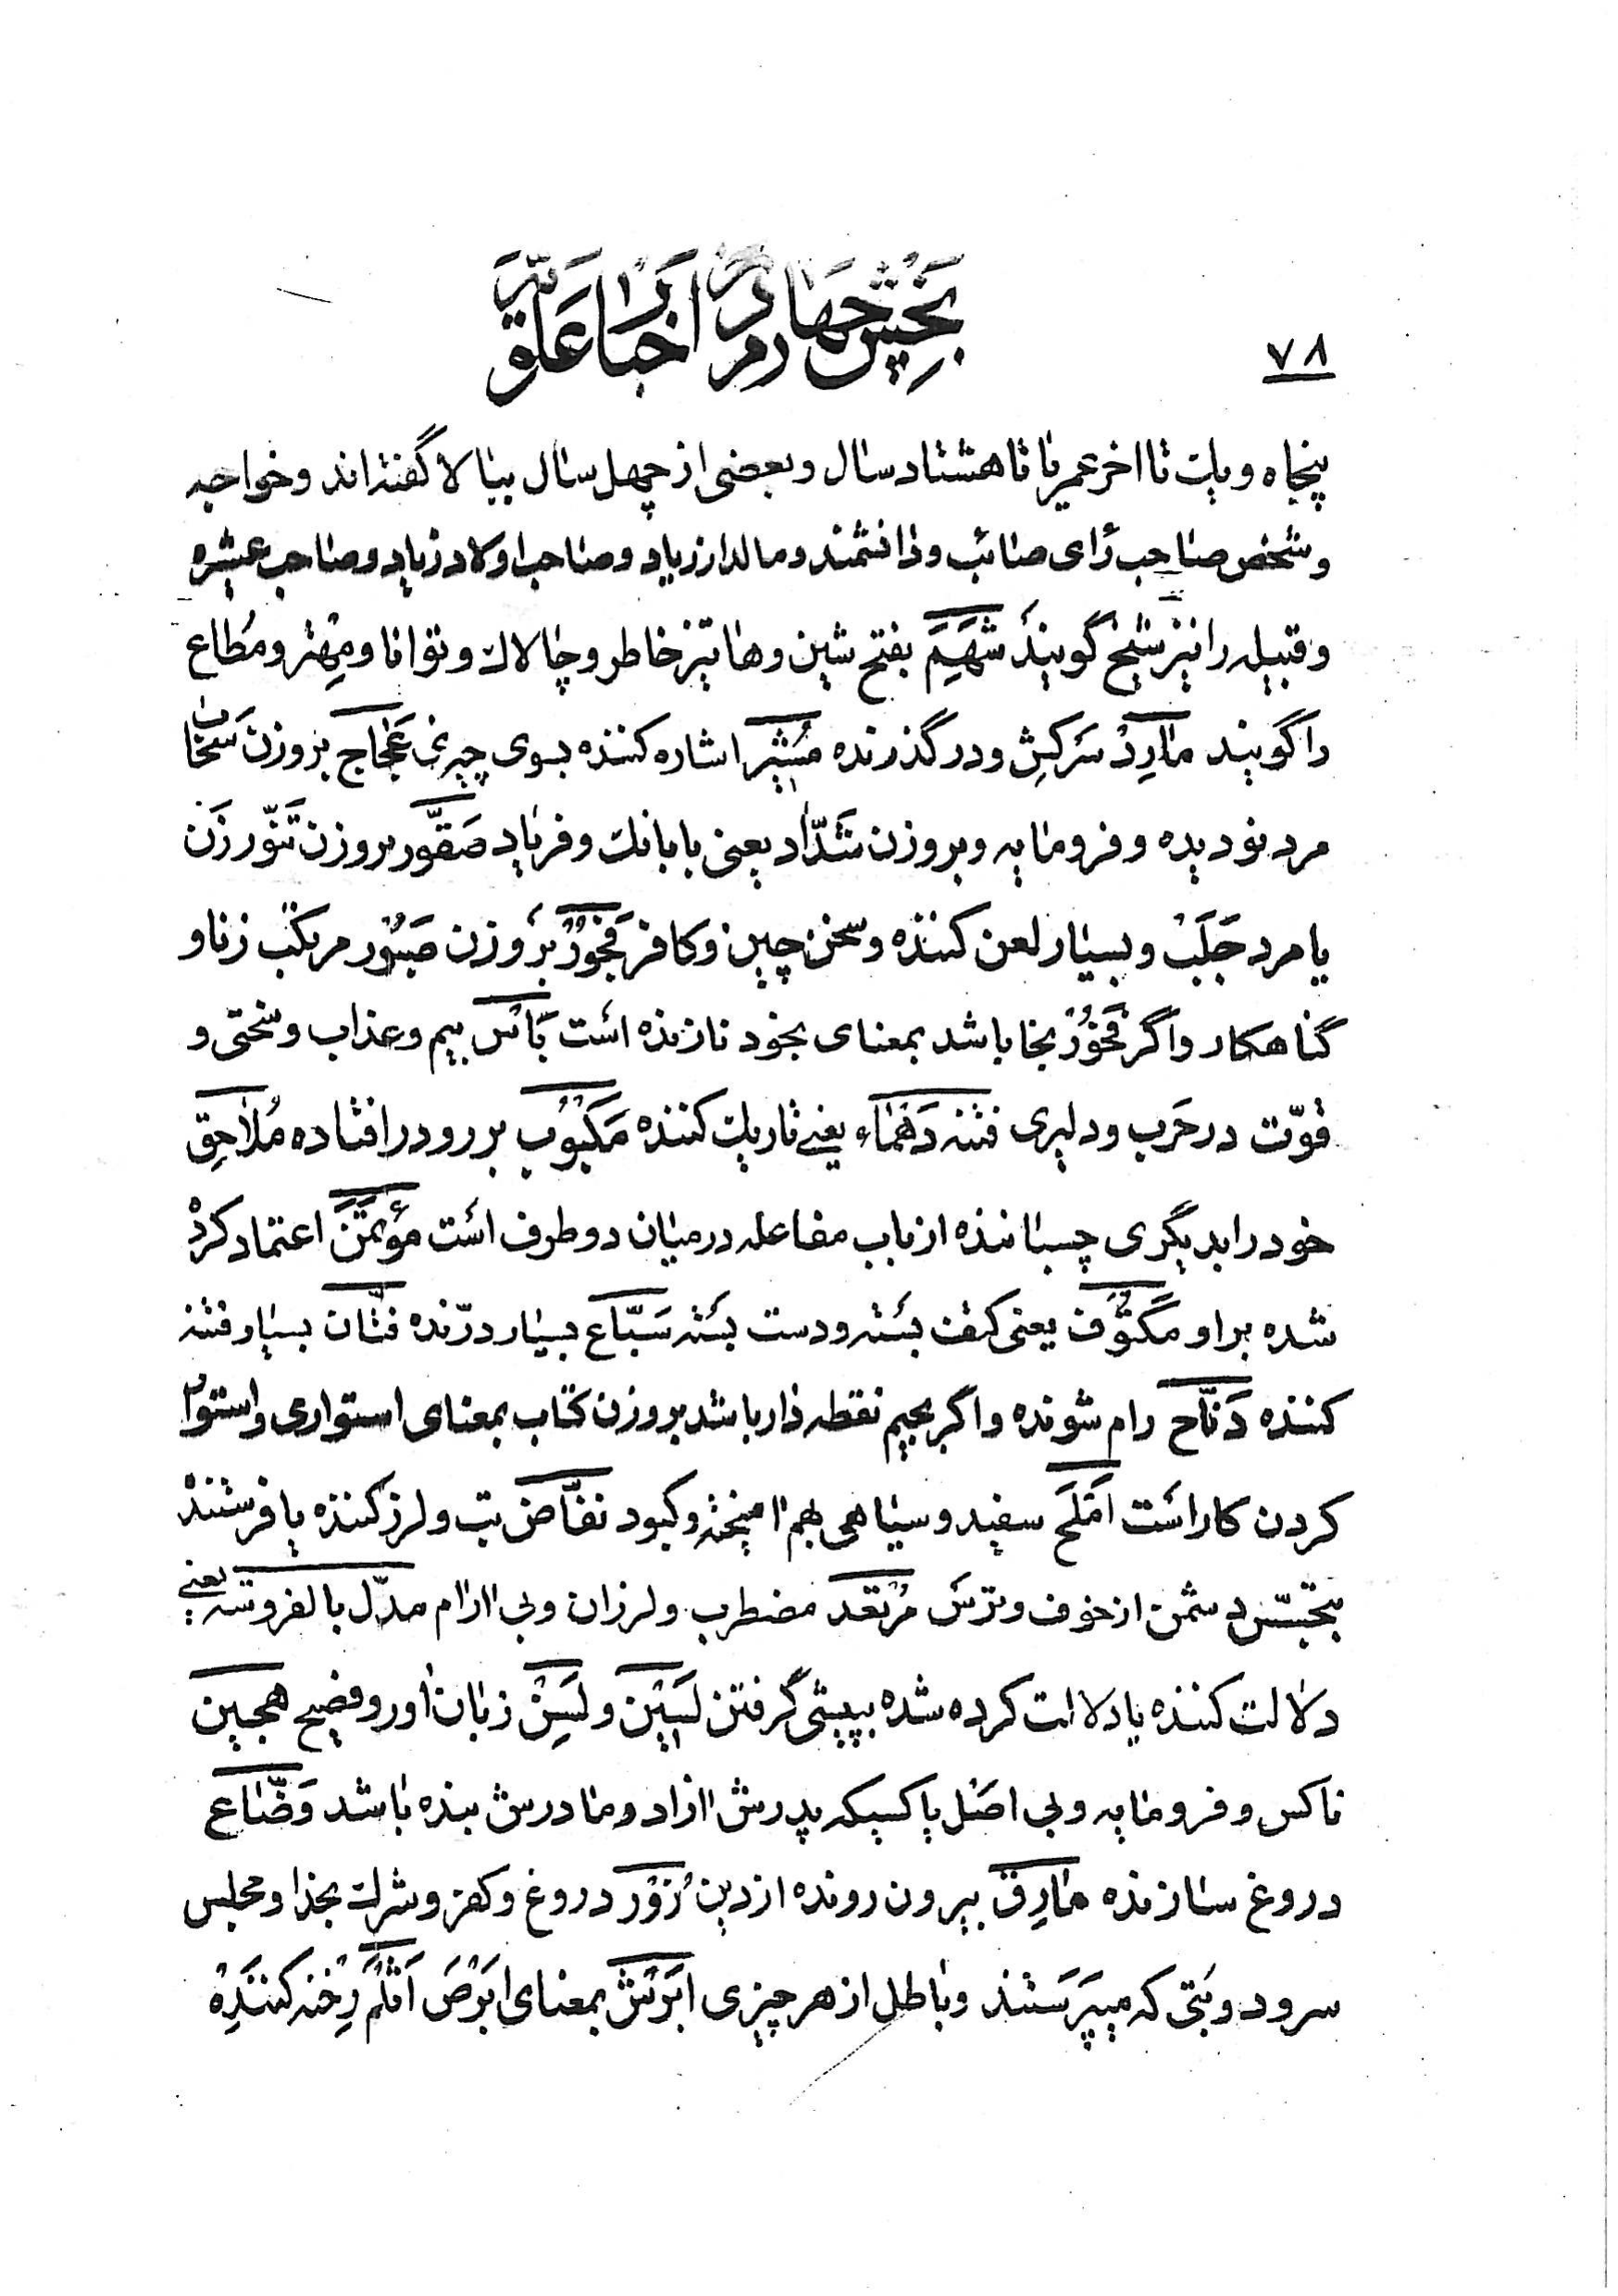 بخش چهارم در اخبار علویه
۷۸
پنجاه ویک تا اخر عمر یا تا هشتاد سال وبعضی از چهل سال ببالا گفته‌اند وخواجه
وشخص صاحب رای صائب ودانشمند ومالدار زیاد وصاحب اولاد زیاد وصاحب عشیره
وقبیله را نیز شیخ گویند شَهَیَم بفتح شین وها تیز خاطر وچالاک وتوانا ومِهتر ومُطاع
را گویند مارِدْ سَرکِش ودر گذرنده مُشیر اشاره کننده بسوی چیزی عَجاج بر وزن سَحٰاب
مرد نودیده وفرومایه وبر وزن شَدّاد یعنی با بانک وفریاد صَقّور بر وزن تَنّور زَن
یا مرد جَلَبْ وبسیار لعن کننده وسخن چین وکافر فَجُورْ بر وزن صَبُور مرتکب زنا و
گناهکار واگر فَخُورْ بخا باشد بمعنای بخود نازنده است بَأس بیم وعذاب وسختی و
قوّت در حَرب ودلیری فتنه دَهْماء یعنی تاریک کننده مَکْبُوبْ بر رو در افتاده مُلاحِقِ
خود را بدیگری چسباننده از باب مفاعله در میان دو طرف است مؤتَمَنْ اعتماد کردْ
شده بر او مَکتُوف یعنی کتف بسته ودست بسته سَبّاع بسیار درّنده فتّان بسیار فتنه
کننده دَنّاح رام شونده واگر بجیم نقطه دار باشد بر وزن کتاب بمعنای استواری واستوار
کردن کار است اَمْلَح سفید وسیاهی بهم امیخته وکبود نفّاض تب ولرز کننده یا فرستندْ
بتجسّس دشمن از خوف وترس مُرتعد مضطرب ولرزان وبی ارام مدلّ بالفروسة یعنی
دلالت کننده یا دلالت کرده شده بپیشی گرفتن لَسین ولَسِنْ زبان اور وفصیح هجین
ناکس وفرومایه وبی اصل یا کسیکه پدرش ازاد ومادرش بنده باشد وَضّاع
دروغ سازنده مارِق بیرون رونده از دین زُوْر دروغ وکفر وشرک بخدا ومجلس
سرود وبتی که میپرَستند وباطل از هر چیزی اَبْرَشْ بمعنای اَبْرَصْ اَثْلَمْ رِخنه کننَدِه